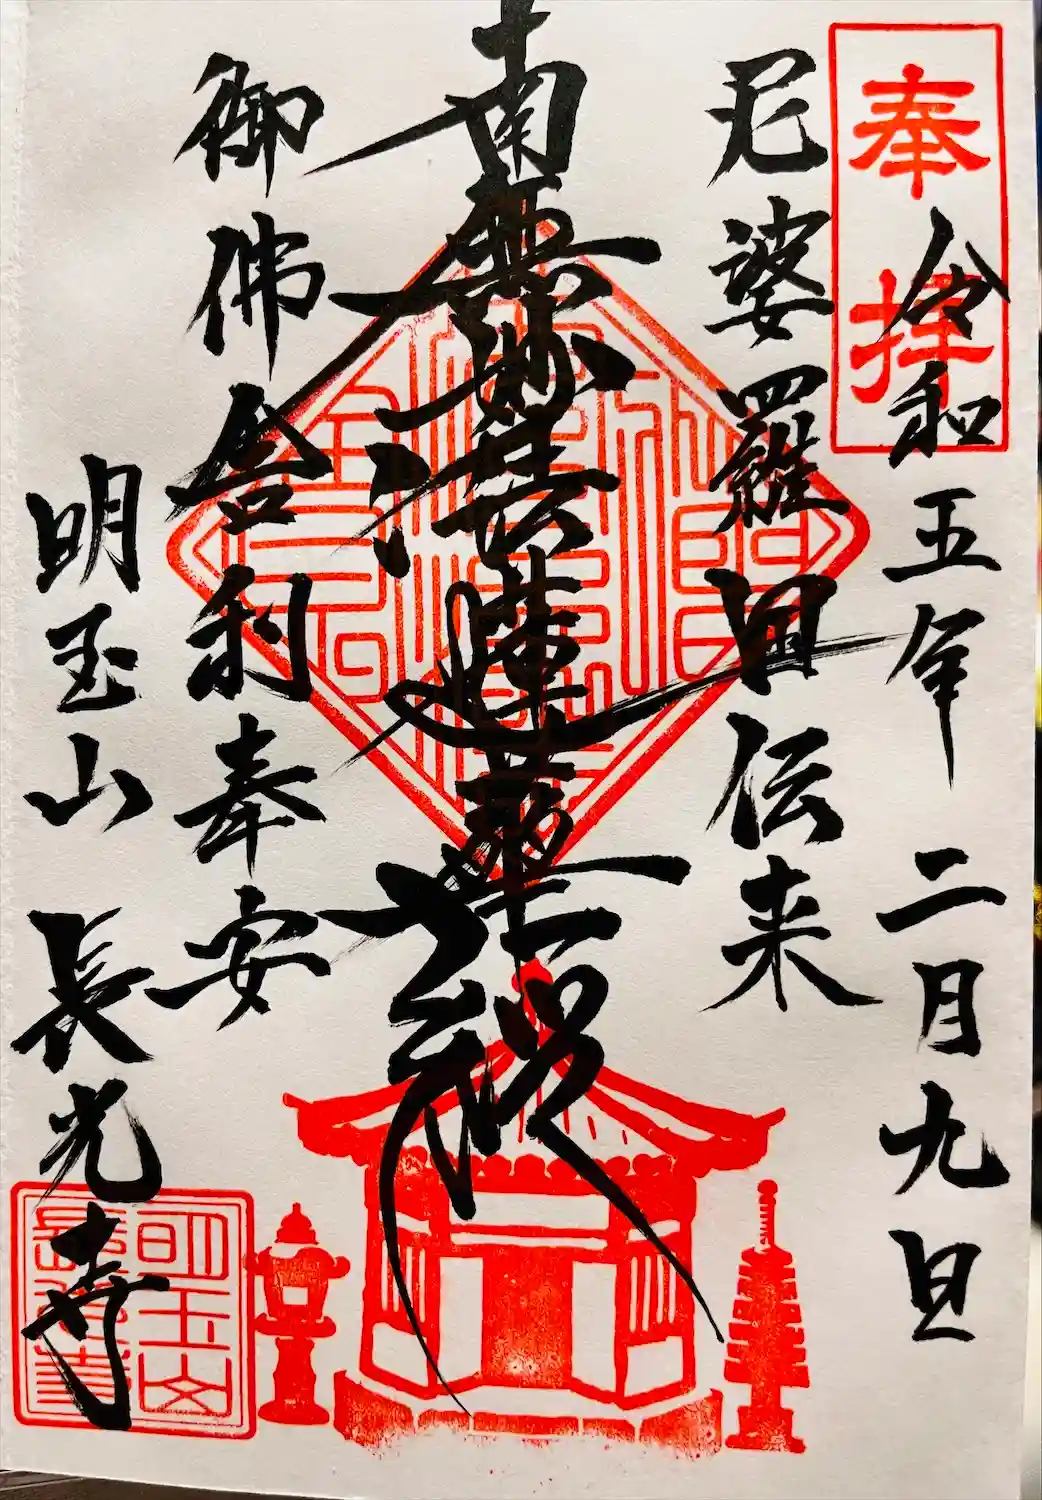 奉拝
令和五年 二月九日
尼婆羅国伝来
南無妙法蓮華経
御佛舎利奉安
明玉山 長光寺
明玉山
長光寺